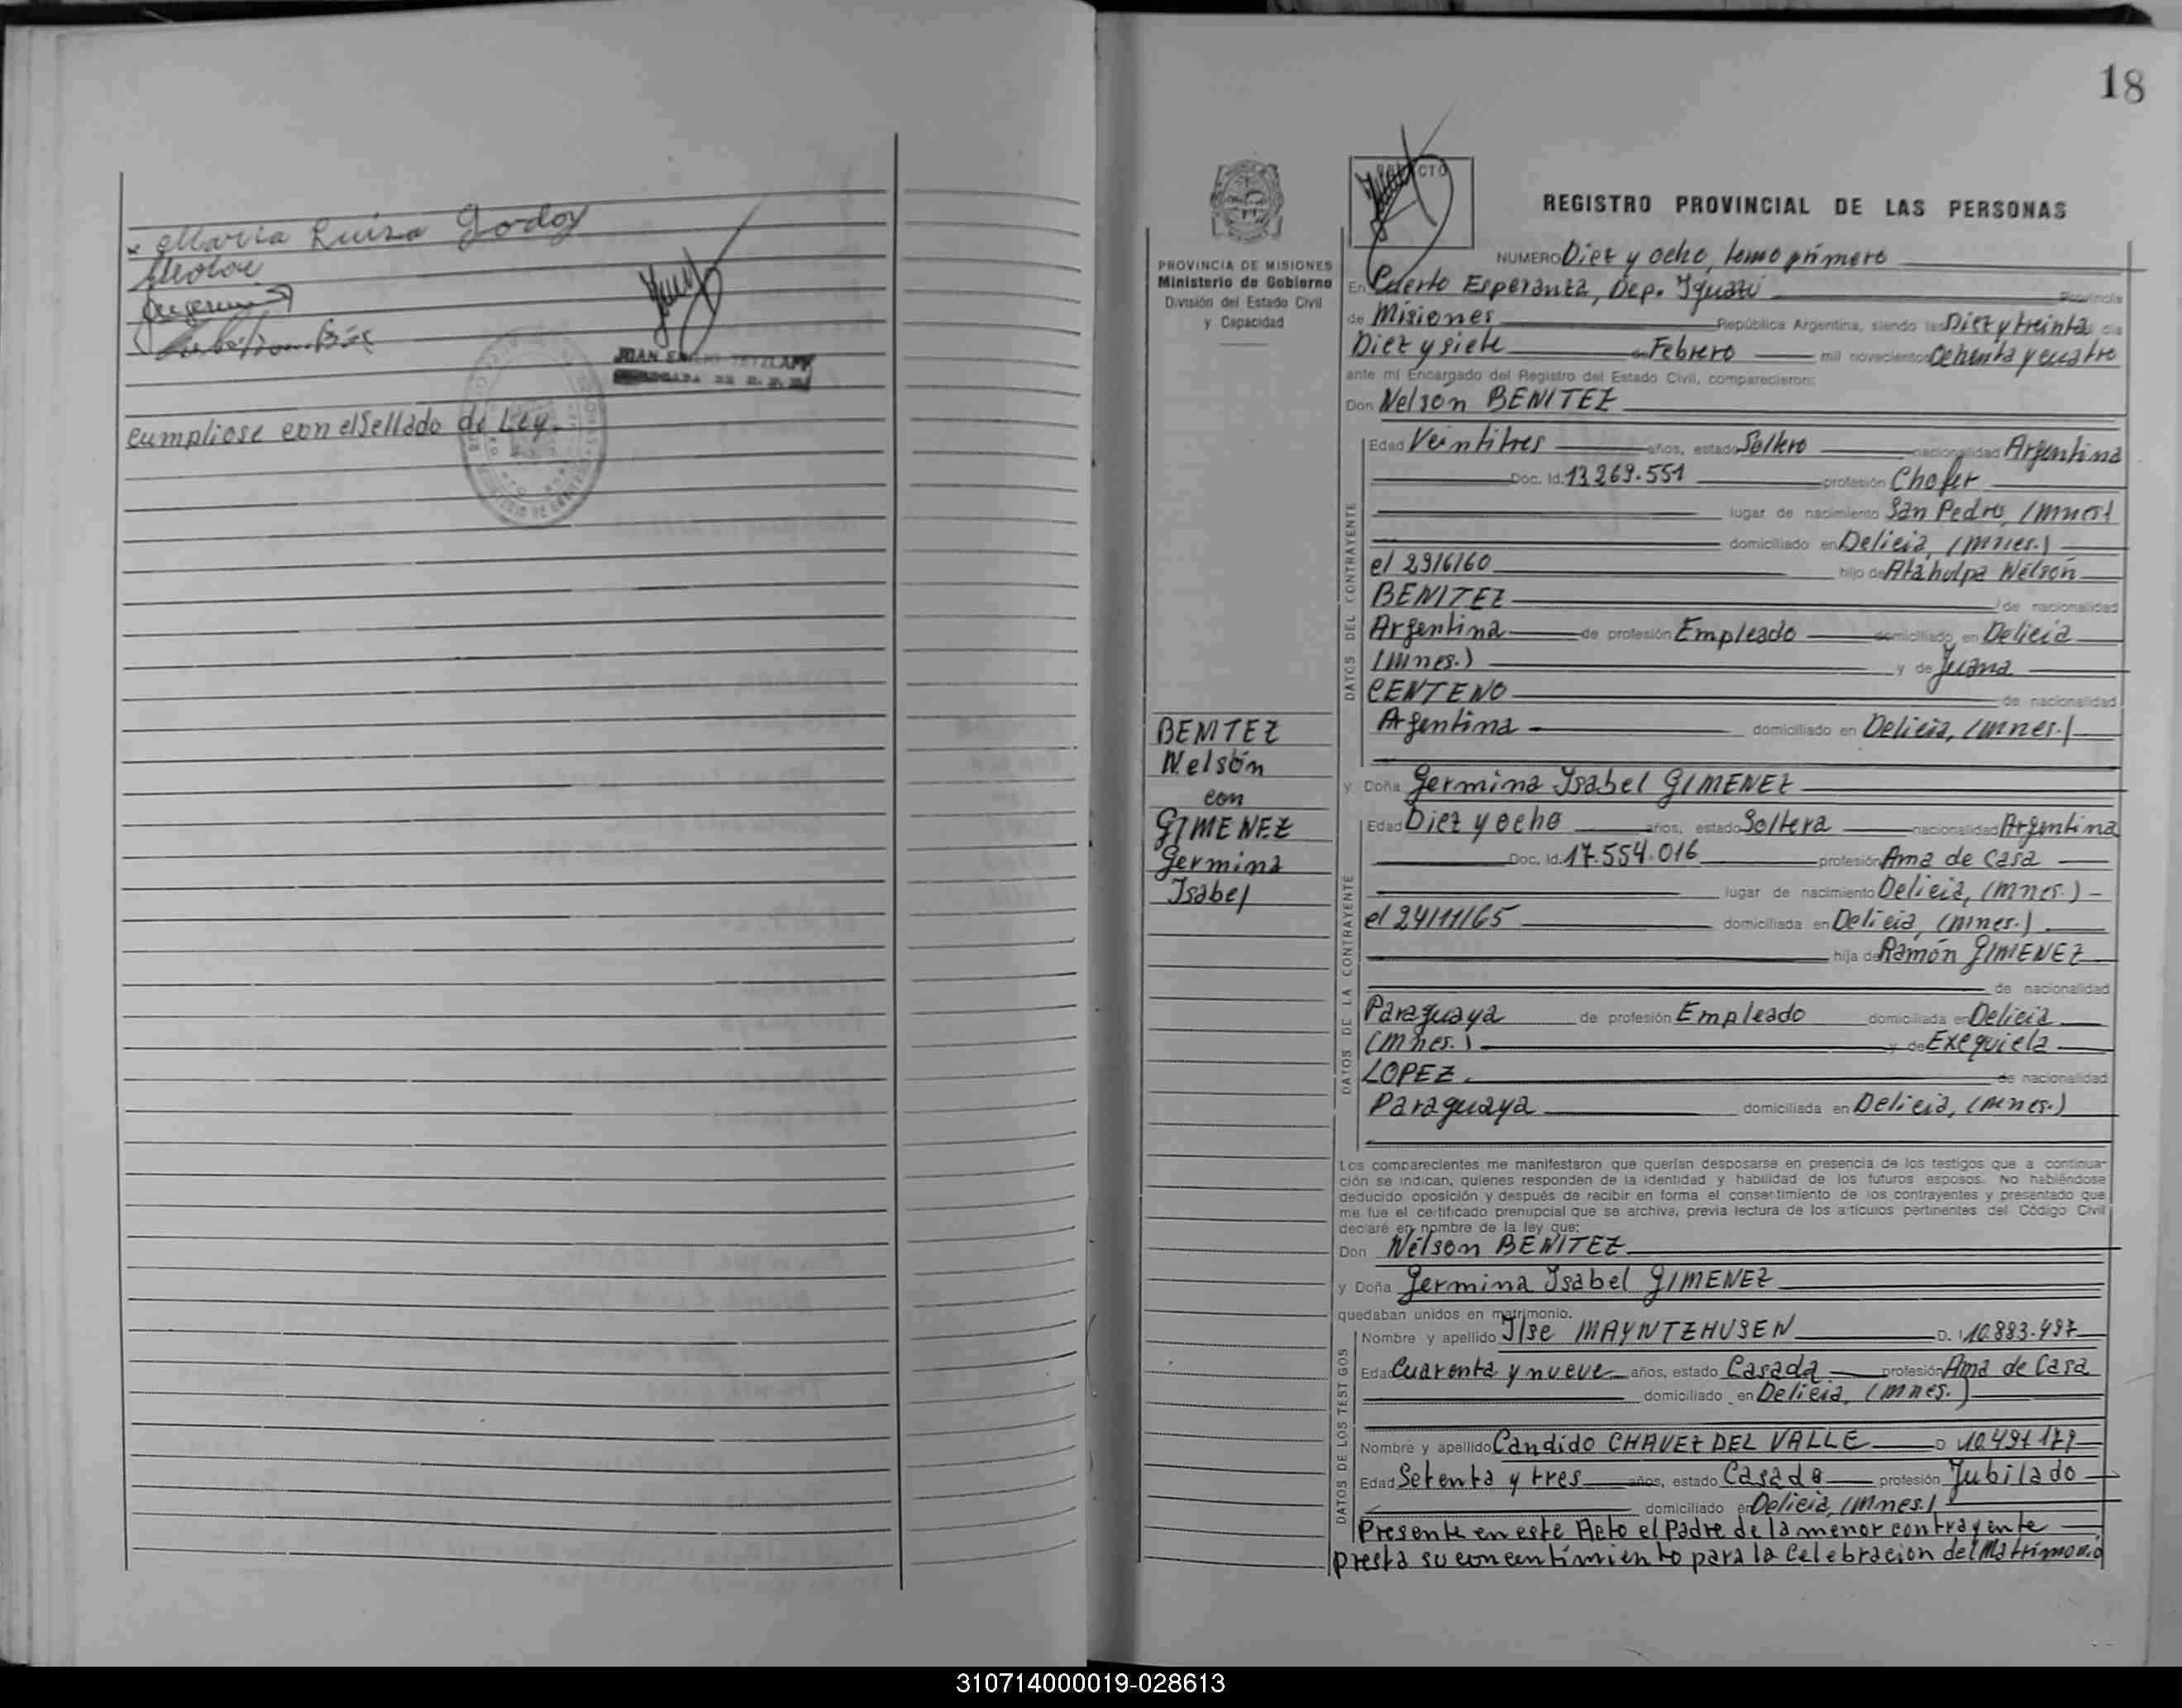 x Maria Luisa Godoy
JUAN EMILIO TETZLAFF
Cumpliose con el Sellado de Ley.
18
REGISTRO PROVINCIAL DE LAS PERSONAS
PROVINCIA DE MISIONES
Ministerio de Gobierno
División del Estado Civil
y Capacidad
NUMERO Diez y ocho, tomo primero
En Puerto Esperanza, Dep. Iguazú Provincia
de Misiones República Argentina, siendo las Diez y treinta día
Diez y siete de Febrero mil novecientos Ochenta y cuatro
ante mí Encargado del Registro del Estado Civil, comparecieron:
Don Nelson BENITEZ
DATOS DEL CONTRAYENTE
Edad Veintitres años, estado Soltero nacionalidad Argentina
Doc. Id. 13.269.551 profesión Chofer
lugar de nacimiento San Pedro, (Mnes)
domiciliado en Delicia, (Mnes.)
el 29/6/60 hijo de Atahulpa Nélson
BENITEZ de nacionalidad
Argentina de profesión Empleado domiciliado en Delicia
(Mnes.) y de Juana
CENTENO de nacionalidad
Argentina domiciliado en Delicia, (Mnes.)
BENITEZ
Nelsón
con
GIMENEZ
Germina
Isabel
y Doña Germina Isabel GIMENEZ
DATOS DE LA CONTRAYENTE
Edad Diez y ocho años, estado Soltera nacionalidad Argentina
Doc. Id. 17.554.016 profesión Ama de Casa
lugar de nacimiento Delicia, (Mnes.)
el 24/11/65 domiciliada en Delicia, (Mnes.)
hija de Ramón GIMENEZ
de nacionalidad
Paraguaya de profesión Empleado domiciliada en Delicia
(Mnes.) y de Exequiela
LOPEZ. de nacionalidad
Paraguaya domiciliada en Delicia, (Mnes.)
Los comparecientes me manifestaron que querían desposarse en presencia de los testigos que a continua-
ción se indican, quienes responden de la identidad y habilidad de los futuros esposos. No habiéndose
deducido oposición y después de recibir en forma el consentimiento de los contrayentes y presentado que
me fue el certificado prenupcial que se archiva, previa lectura de los artículos pertinentes del Código Civil
declaré en nombre de la ley que:
Don Nélson BENITEZ
y Doña Germina Isabel GIMENEZ
quedaban unidos en matrimonio.
DATOS DE LOS TESTIGOS
Nombre y apellido Ilse MAYNTZHUSEN D. I 10.883.497
Edad Cuarenta y nueve años, estado Casada profesión Ama de Casa
domiciliado en Delicia, (Mnes.)
Nombre y apellido Candido CHAVEZ DEL VALLE D 10.491.179
Edad Setenta y tres años, estado Casado profesión Jubilado
domiciliado en Delicia, (Mnes.)
Presente en este Acto el Padre de la menor contrayente
presta su concentimiento para la Celebracion del Matrimonio
310714000019-028613